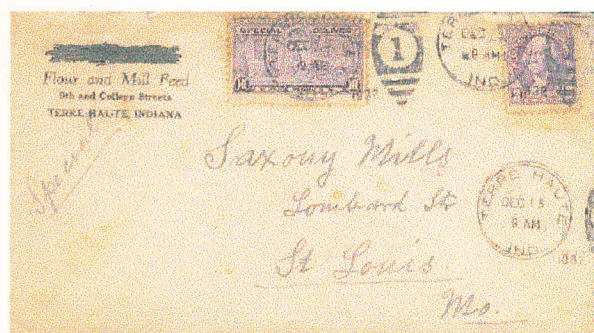 Flour and Mill Feed
9th and College Streets
TERRE HAUTE, INDIANA
Special
SPECIAL DELIVERY
1
TERRE HAUTE
DEC
8 AM
IND.
Saxony Mills
Lombard St
St Louis
Mo.
TERRE HAUTE
DEC 13
9 AM
IND.